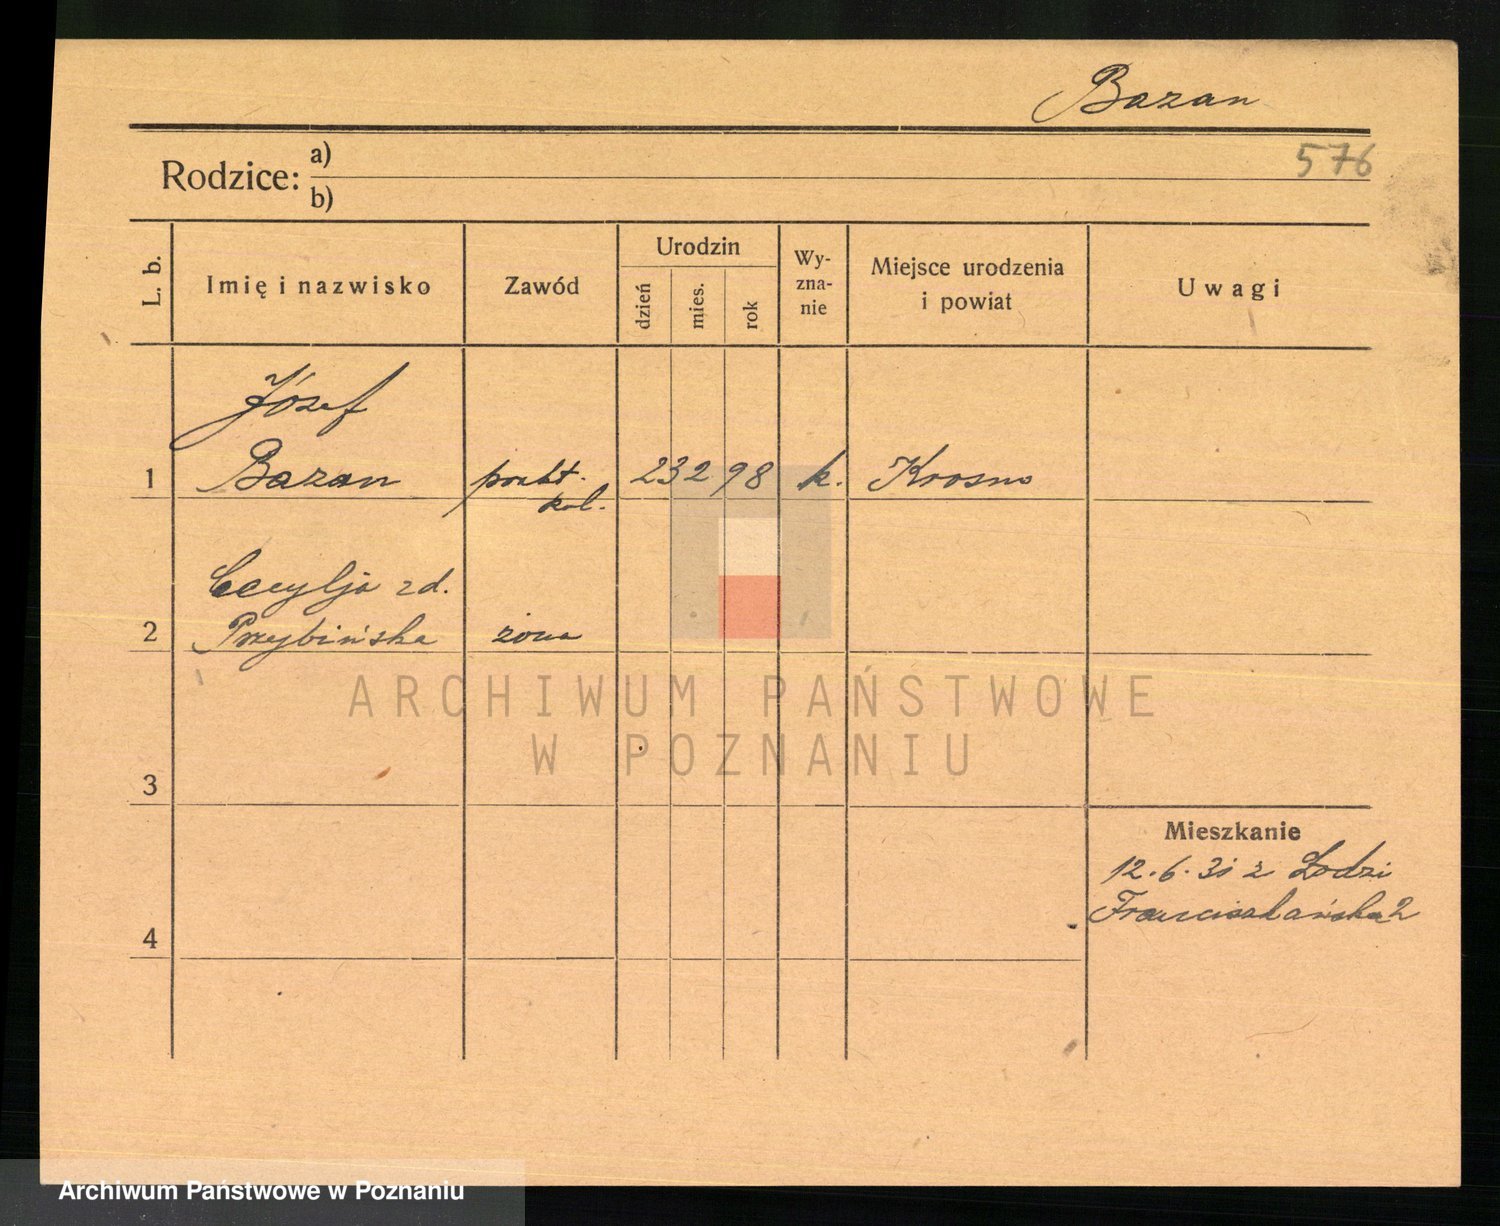 Bazan
576
Rodzice: a)
b)
L. b.
Imię i nazwisko
Zawód
Urodzin
dzień
mies.
rok
Wy-
zna-
nie
Miejsce urodzenia
i powiat
Uwagi
Józef
1 Bazan prakt. 23 2 98 k. Krosno
kol.
Cecylja zd.
2 Przybińska żona
ARCHIWUM PAŃSTWOWE
W POZNANIU
3
Mieszkanie
12.6.31 z Łodzi
Franciszkańska 2
4
Archiwum Państwowe w Poznaniu